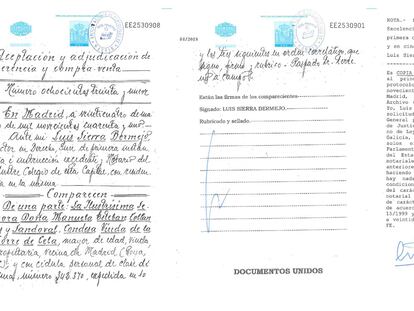 EE2530908
Aceptación y adjudicación de
herencia y compra-venta
Número ochocientos treinta y nueve
En Madrid, a veinticuatro de ma
de mil novecientos cuarenta y uno
Ante mí Luis Sierra Bermejo
en Derecho, Juez de primera instan
e instrucción excedente, Notario del
Ilustre Colegio de esta Capital, con residen
en la misma
Comparecen
De una parte: La Ilustrísima Se
ora Doña Manuela Esteban Collan
y Sandoval, Condesa Viuda de la
orre de Cela, mayor de edad, viuda,
propietaria, vecina de Madrid
y con cédula personal de clase
número 342.370, expedida en
EE2530901
03/2023
y los tres siguientes en orden correlativo, que
signo, firmo y rubrico
Están las firmas de los comparecientes.
Signado: LUIS SIERRA BERMEJO.
Rubricado y sellado.
DOCUMENTOS UNIDOS
NOTA.-
Excelencia
primera c
y en cinc
Luis Sier
Es COPIA
al
protocol
novecient
Madrid,
Archivo
To, Luis
solicitud
General
de Justic
de Lo
Galicia,
solos
Parlament
del Estad
notariale
anteriore
haciendo
hay nada
condicion
del
notarial
de carác
de acuerd
15/1999 y
a veintid
FE.